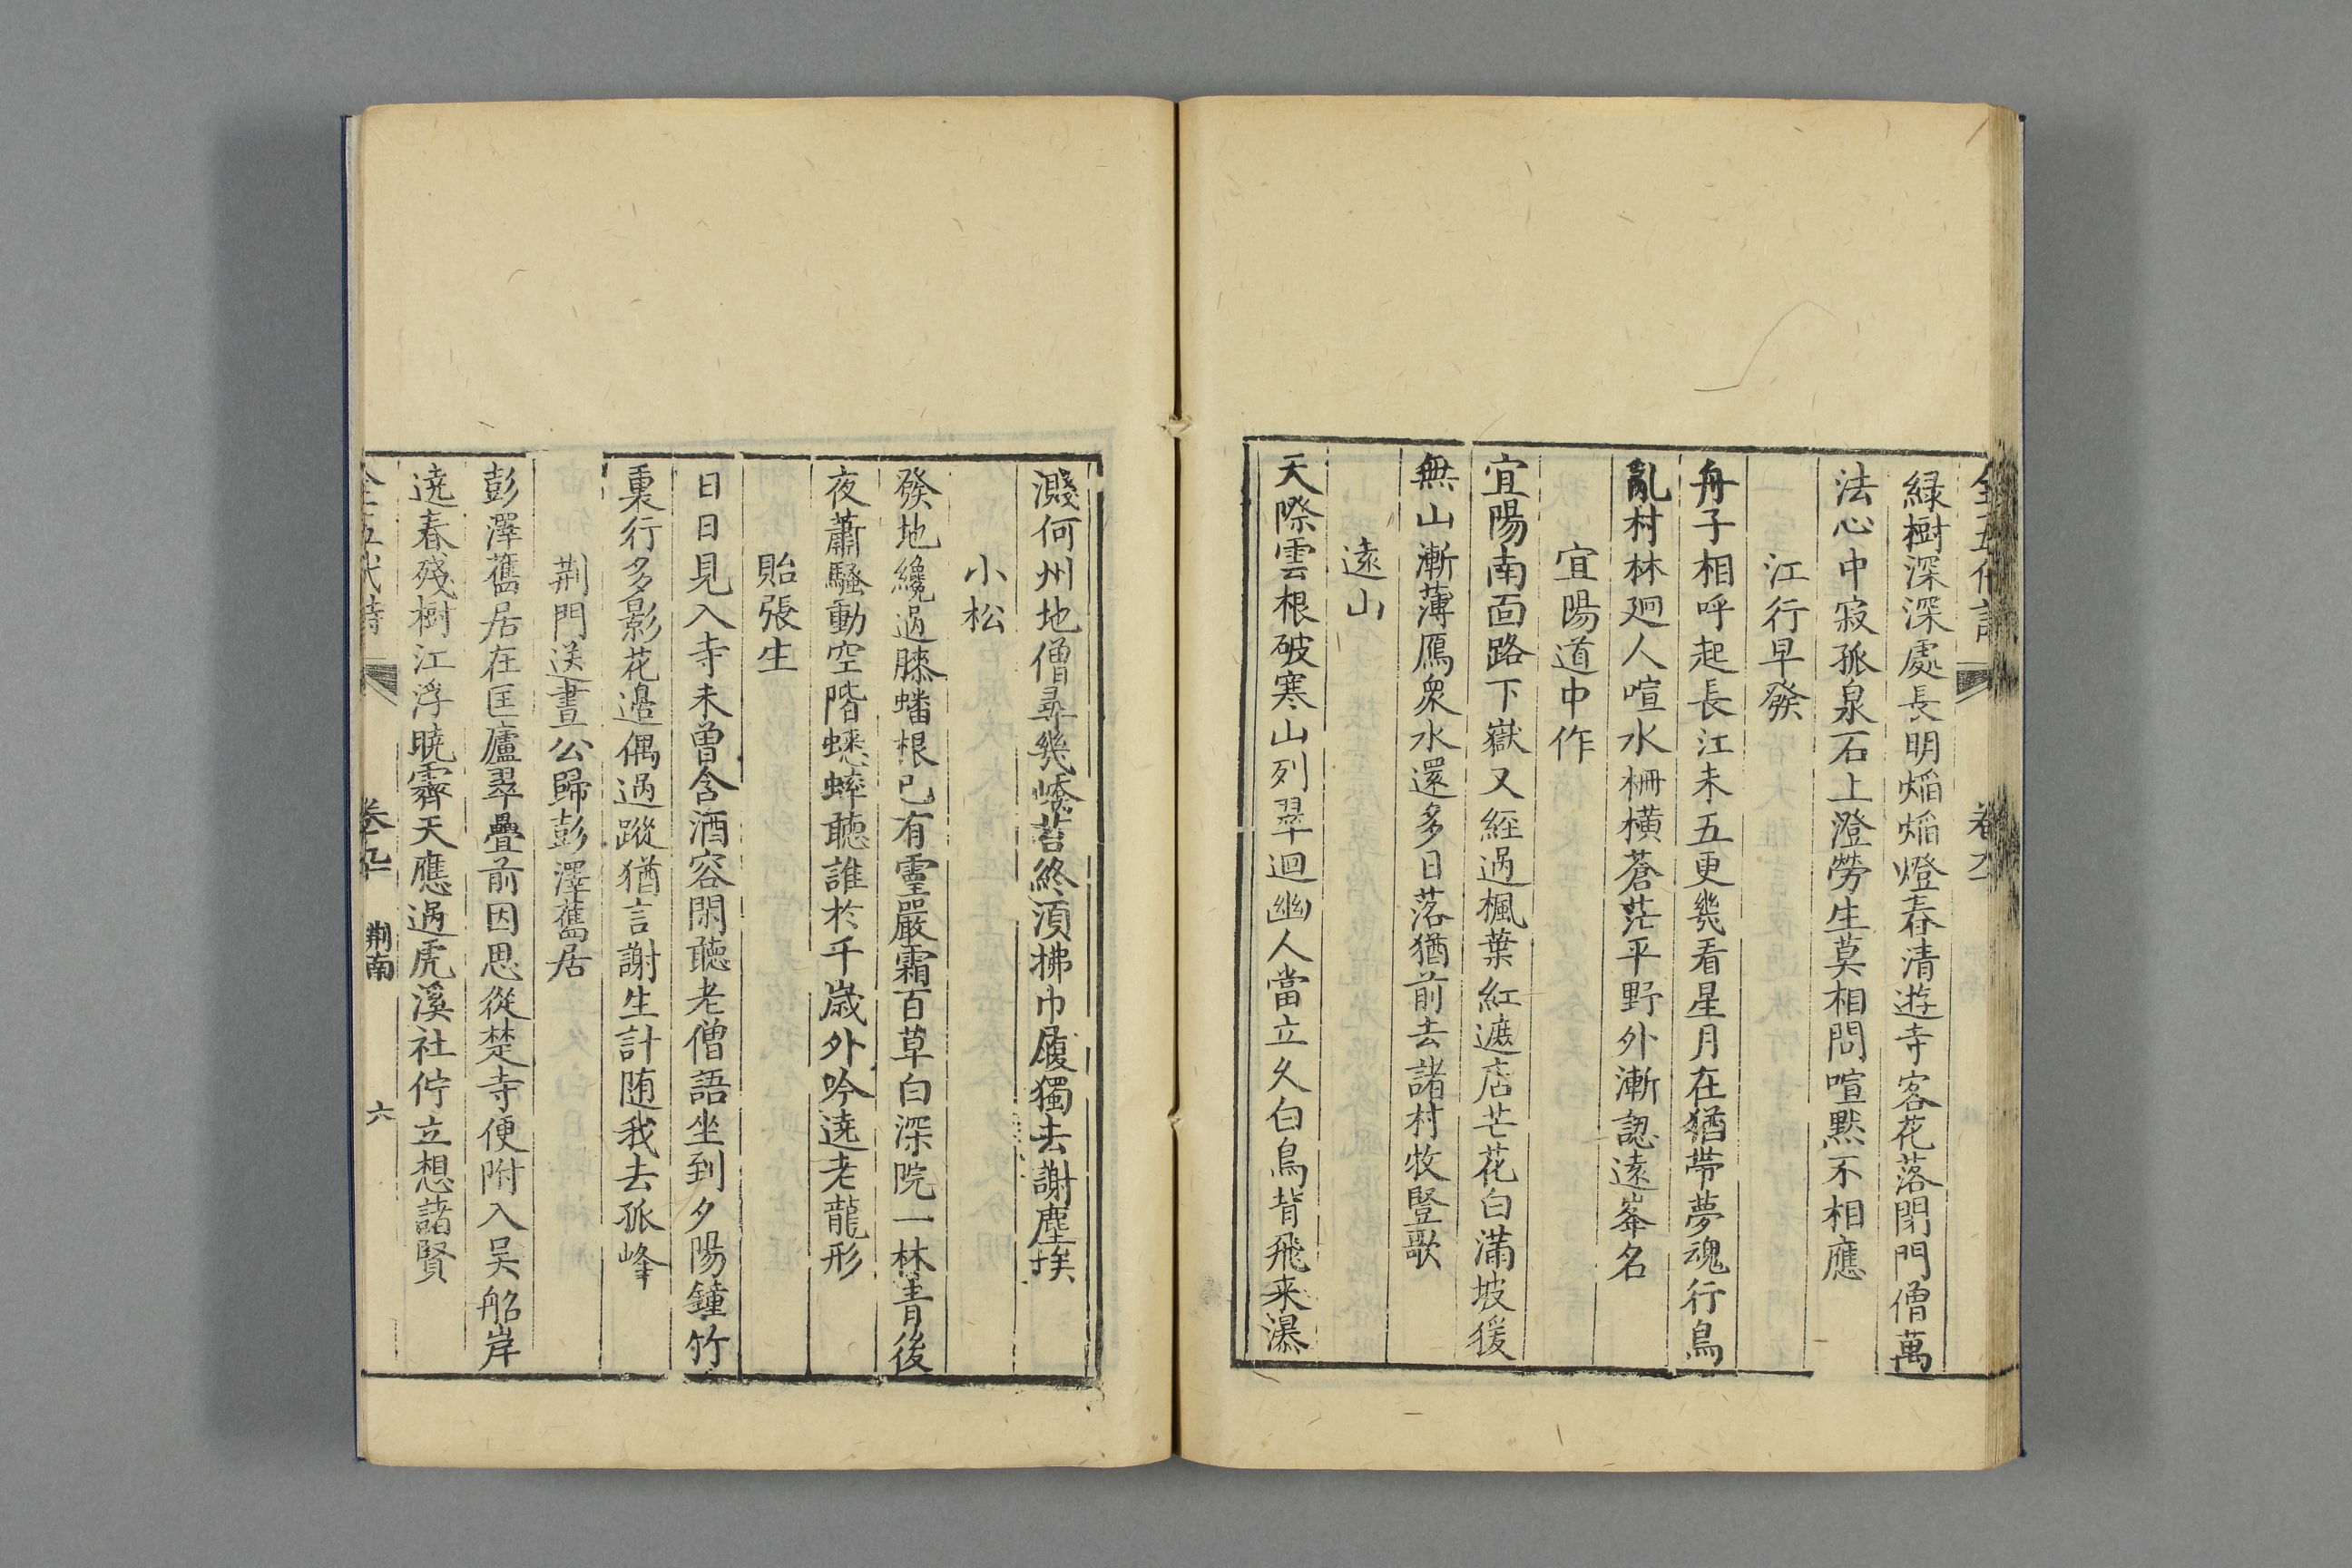 全五代詩 卷九
緑樹深深處長明焰焰燈春清遊寺客花落閉門僧萬
法心中寂孤泉石上澄勞生莫相問喧默不相應
江行早發
舟子相呼起長江未五更幾看星月在猶帶夢魂行鳥
亂村林廻人喧水柵横蒼茫平野外漸認遠峯名
宜陽道中作
宜陽南面路下嶽又經過楓葉紅遮店芒花白滿坡猨
無山漸薄鴈衆水還多日落猶前去諸村牧豎歌
遠山
天際雲根破寒山列翠迴幽人當立久白鳥背飛来瀑
濺何州地僧尋幾嶠苔終湏拂巾履獨去謝塵埃
小松
發地纔過膝蟠根已有靈嚴霜百草白深院一林青後
夜蕭騷動空階蟋蟀聽誰於千歲外吟遶老龍形
貽張生
日日見入寺未曾含酒容閑聽老僧語坐到夕陽鐘竹
裏行多影花邉偶過蹤猶言謝生計随我去孤峰
荆門送晝公歸彭澤舊居
彭澤舊居在匡廬翠疊前因思從楚寺便附入吴船岸
遶春殘樹江浮曉霽天應過虎溪社佇立想諸賢
全五代詩 卷九 荆南 六